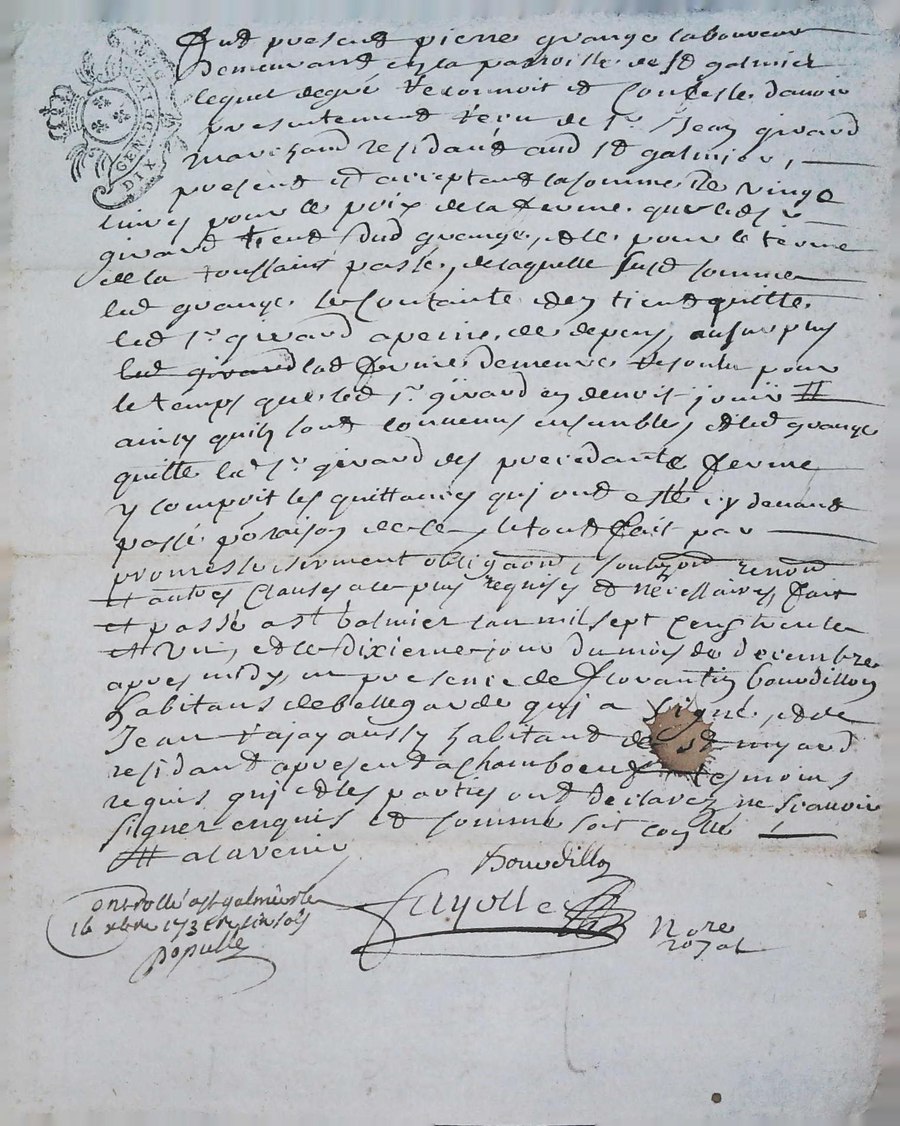 GEN DE
DIX
Fut present pierre grange laboureur
demeurand en la parroisse de St galmier
lequel de gré reconnoit et confesse davoir
presentement reçu de Sr Jean girard
marchand residant aud St galmier,
present et acceptant la somme de vingt
livres pour le prix de la ferme que led sr
girard tient dud grange, et ce pour le terme
de la toussaint passé, de laquelle susd somme
led grange se contante et en tient quitte
led Sr girard a peine de depens, au surplus
led girard lad ferme demeure resolue pour
le temps que led Sr girard en devoit jouir #
ainsy quils sont convenus ensembles, et led grange
quitte led Sr girard des precedante ferme
y compris les quittances qui ont esté cy devant
passé p raison de ce, le tout fait par
promesse serment obligaon, soubzon renon
et autres clauses a ce plus requises et necessaires, fait
et passé a St galmier lan mil sept cens trente
et un, et le dixieme jour du mois de decembre
apres midy, en presence de florantin bourdillon
habitans de bellegarde qui a signé, et de
Jean rajay aussy habitant de St myard
residant apresent a Chamboeuf tesmoins
requis qui et les parties ont declarez ne scavoir
signer enquis et sommé soit controllé
# a lavenir
Bourdillon
Controllé a St galmier le
16 xbre 1731 reçu six sols
populle
fayolle
Nore
royal